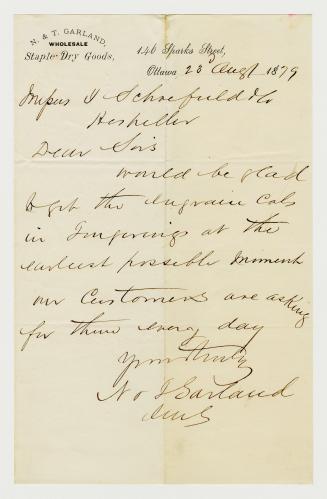 N. & T. GARLAND,
WHOLESALE
Staple Dry Goods,
146 Sparks Street,
Ottawa 23 Augt 1879
Messrs J Schofield & Co
Dear Sirs
would be glad
to get the ingrain Cols
in Fingerings at the
earliest possible moment
our Customers are asking
for them every day
Yours truly
N & T Garland